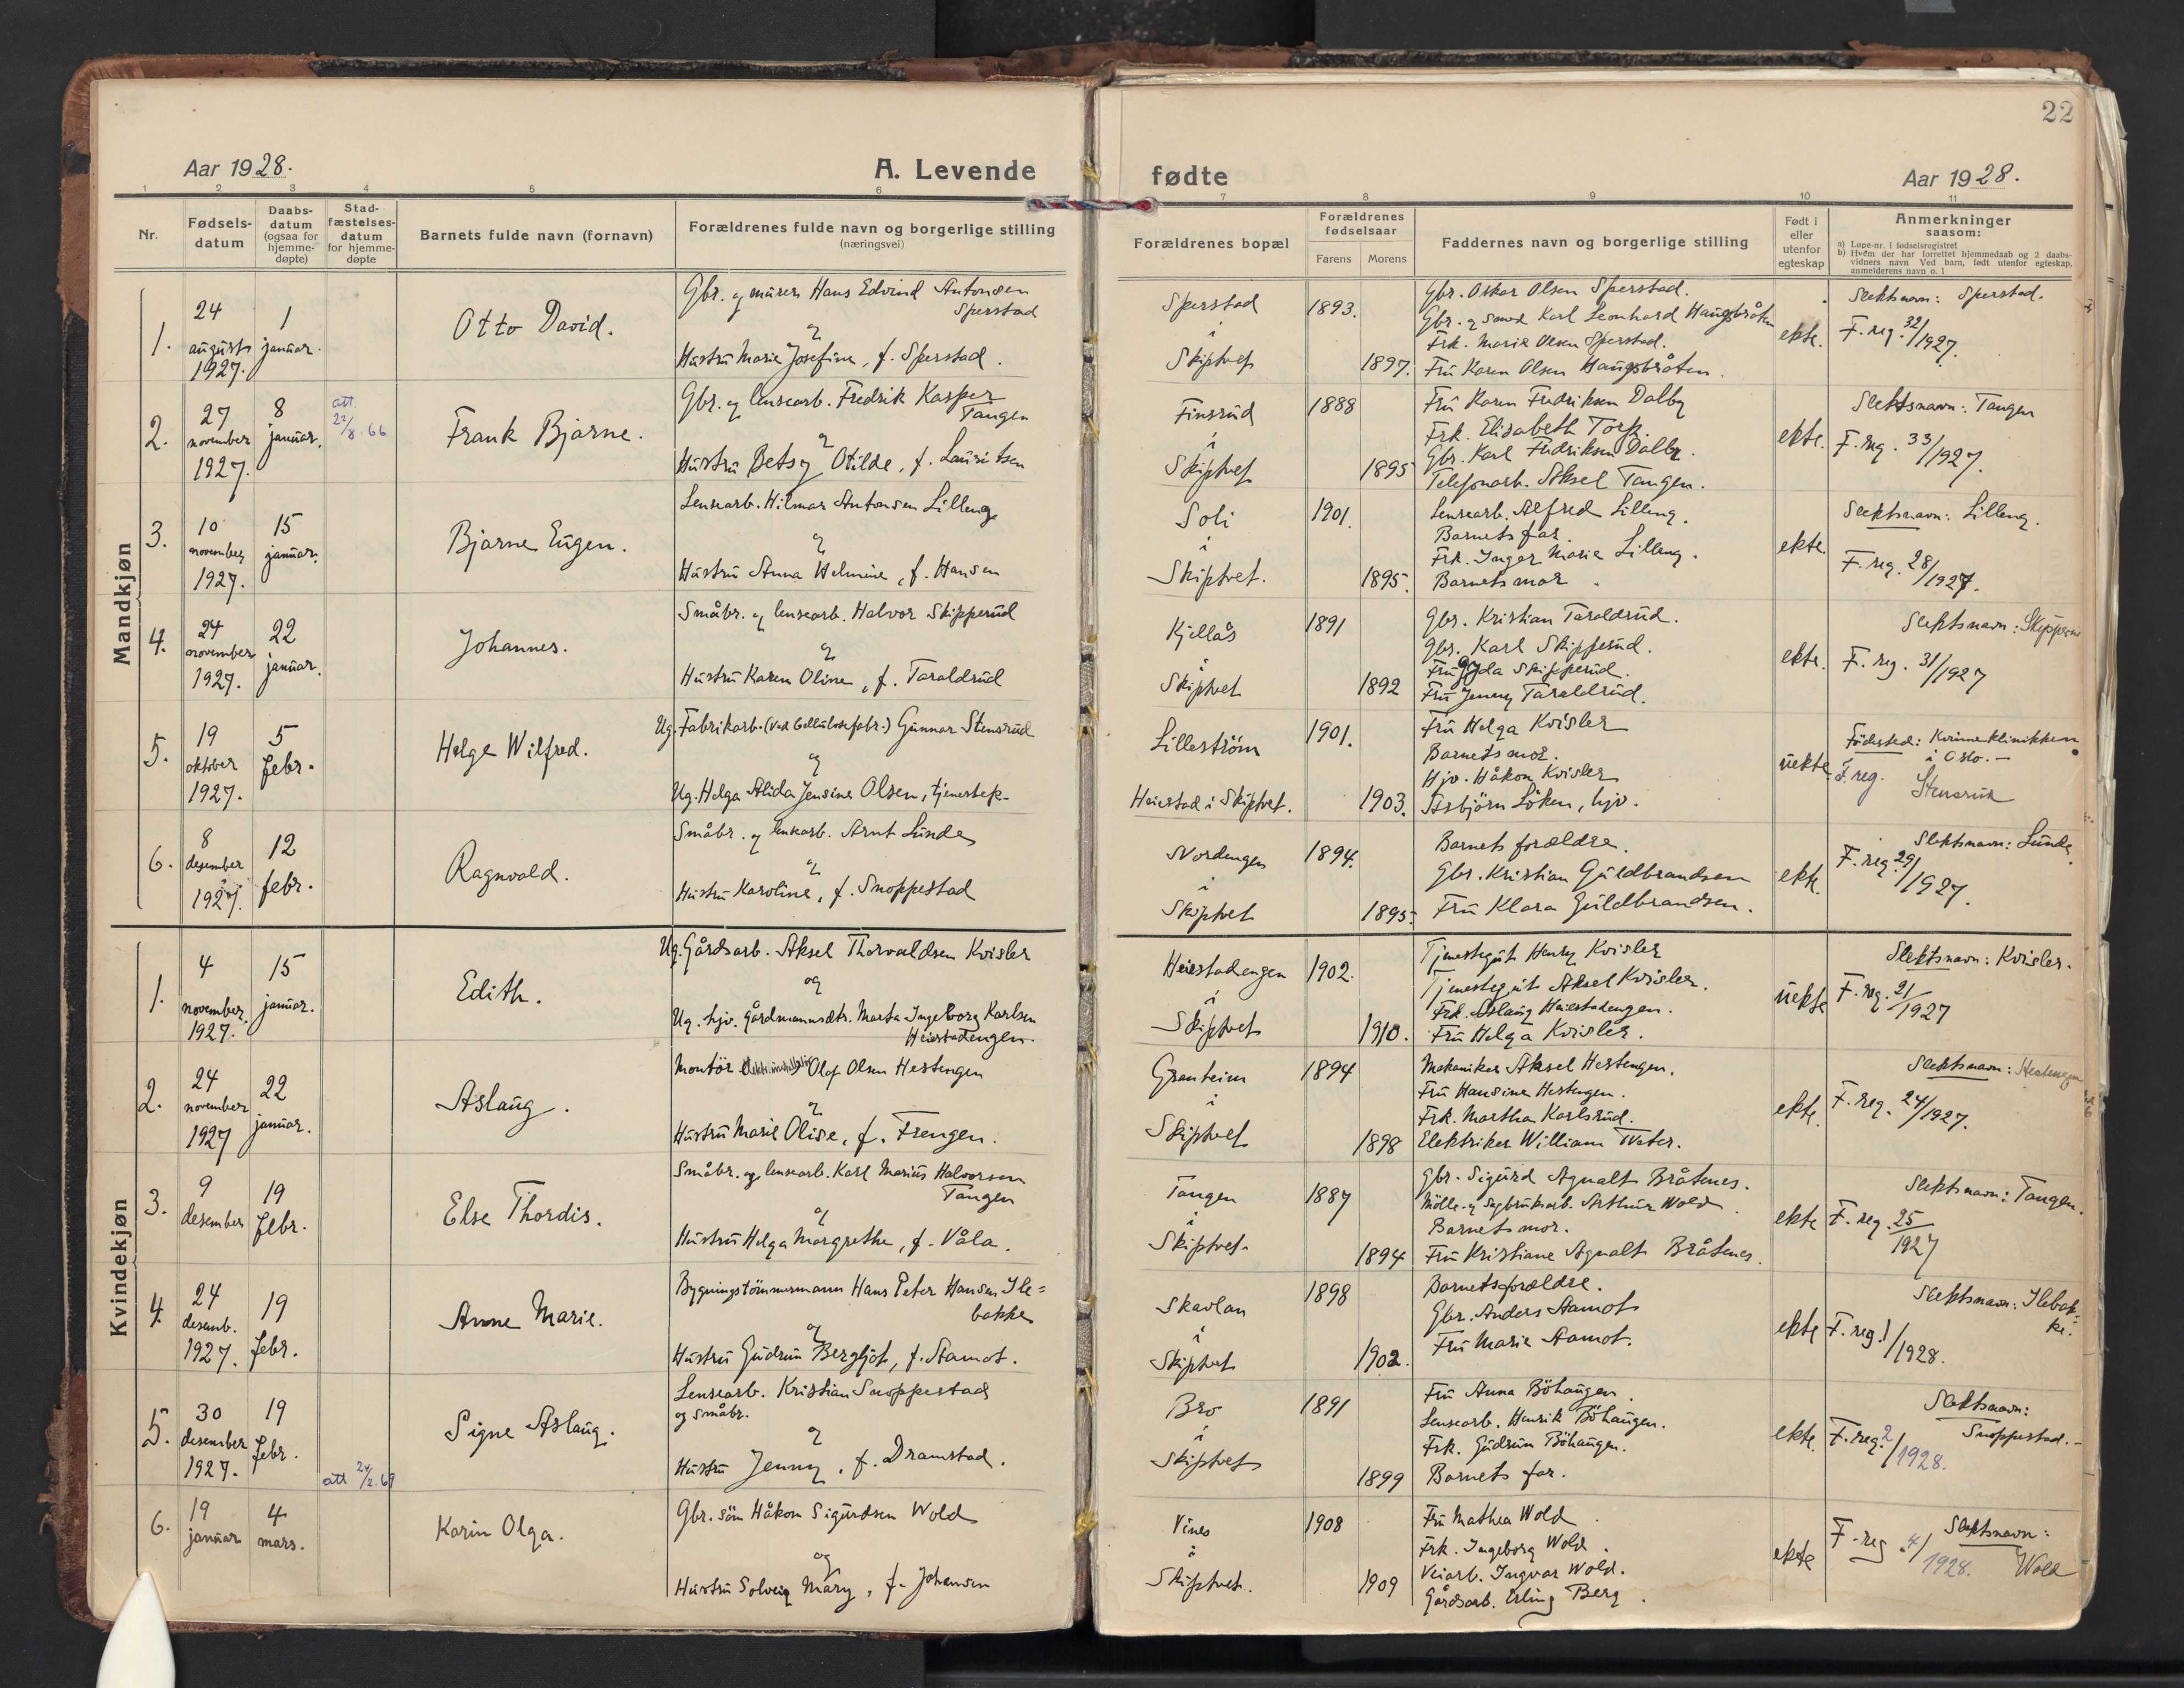 22
Aar 1928.
A. Levende
fødte
Aar 1928.
1 2 3 4 5 6 7 8 9 10 11
Nr.
Fødsels-
datum
Daabs-
datum
(ogsaa for
hjemme-
døpte)
Stad-
fæstelses-
datum
for hjemme-
døpte
Barnets fulde navn (fornavn)
Forældrenes fulde navn og borgerlige stilling
(næringsvei)
Forældrenes bopæl
Forældrenes
fødselsaar
Farens Morens
Faddernes navn og borgerlige stilling
Født i
eller
utenfor
egteskap
Anmerkninger
saasom:
a) Løpe-nr. i fødselsregistret
b) Hvem der har forrettet hjemmedaab og 2 daabs-
vidners navn Ved barn, født utenfor egteskap,
anmelderens navn o. l
Mandkjøn
1.
24
august
1927.
1
januar.
Otto David.
Gbr. og murer Hans Edvind Antonsen
Sperstad
og
Hustru Marie Josefine, f. Sperstad.
Sperstad
i
Skiptvet
1893.
1897.
Gbr. Oskar Olsen Sperstad.
Gbr. og smed Karl Leonhard Haugsbråten
Frk. Marie Olsen Sperstad.
Fru Karen Olsen Haugsbråten.
ekte.
Slektsnavn: Sperstad.
F. reg. 32/1927.
2.
27
november
1927.
8
januar.
att.
22/8.66
Frank Bjarne.
Gbr. og lensearb. Fredrik Kasper
Tangen
og
Hustru Betsy Otilde, f. Lauritsen
Finsrud
i
Skiptvet
1888
1895
Fru Karen Fredriksen Dalby
Frk. Elisabeth Torp.
Gbr. Karl Fredriksen Dalby.
Telefonarb. Aksel Tangen.
ekte.
Slektsnavn: Tangen
F. reg. 33/1927.
3.
10
november
1927.
15
januar.
Bjarne Eugen.
Lensearb. Hilmar Antonsen Lilleng
og
Hustru Anna Helmine, f. Hansen
Soli
i
Skiptvet.
1901.
1895.
Lensearb. Alfred Lilleng.
Barnets far.
Frk. Inger Marie Lilleng.
Barnets mor.
ekte.
Slektsnavn: Lilleng.
F. reg. 28/1927.
4.
24
november
1927.
22
januar.
Johannes.
Småbr. og lensearb. Halvor Skipperud
og
Hustru Karen Oline, f. Taraldrud
Kjellås
i
Skiptvet
1891
1892
Gbr. Kristian Taraldrud.
Gbr. Karl Skipperud.
Fru Gyda Skipperud.
Fru Jenny Taraldrud.
ekte.
Slektsnavn: Skipperu
F. reg. 31/1927
5.
19
oktober
1927.
5
febr.
Helge Wilfred.
Ug. Fabrikarb. (ved Cellulosefabr.) Gunnar Stensrud
og
Ug. Helga Alida Jensine Olsen, tjenestep.
Lillestrøm
Heiestad i Skiptvet.
1901.
1903.
Fru Helga Kvisler
Barnets mor.
Hjv. Håkon Kvisler
Asbjörn Löken, hjv.
uekte
Födested: Kvinneklinikken
i Oslo. —
F. reg.
Stensrud
6.
8
desember
1927.
12
febr.
Ragnvald.
Småbr. og lensearb. Arnt Lunde
og
Hustru Karoline, f. Snoppestad
Nordengen
i
Skiptvet
1894.
1895.
Barnets forældre.
Gbr. Kristian Guldbrandsen
Fru Klara Guldbrandsen.
ekte.
Slektsnavn: Lunde
F. reg. 29/1927.
Kvindekjøn
1.
4
november.
1927.
15
januar.
Edith.
Ug. Gårdsarb. Aksel Thorvaldsen Kvisler
og
Ug. hjv. gårdmannsdtr. Marta Ingeborg Karlsen
Heiestadengen.
Heiestadengen
i
Skiptvet
1902.
1910.
Tjenestegut Henry Kvisler
Tjenestegut Aksel Kvisler.
Frk. Aslaug Heiestadengen.
Fru Helga Kvisler.
uekte
Slektsnavn: Kvisler.
F. reg. 21/1927
2.
24
november
1927
22
januar.
Aslaug.
Montör Olaf Olsen Hestengen
og
Hustru Marie Olise, f. Frengen.
Granheim
i
Skiptvet
1894
1898
Mekaniker Aksel Hestengen.
Fru Hansine Hestengen.
Frk. Martha Karlsrud.
Elektriker William Tveter.
ekte.
Slektsnavn: Hestengen
F. reg. 24/1927.
3.
9
desember
19
febr.
Else Thordis.
Småbr. og lensearb. Karl Marius Halvorsen
Tangen
og
Hustru Helga Margrethe, f. Våla.
Tangen
i
Skiptvet.
1887
1894
Gbr. Sigurd Agnalt Bråtenes.
Mölle- og Sagbruksarb. Arthur Wold.
Barnets mor.
Fru Kristiane Agnalt Bråtenes.
ekte
Slektsnavn: Tangen.
F. reg. 25/1927
4.
24
desemb.
1927.
19
febr.
Anne Marie.
Bygningstömmermann Hans Peter Hansen Ile=
bakke
og
Hustru Gudrun Bergljot, f. Aamot.
Skavlan
i
Skiptvet
1898
1902.
Barnets forældre.
Gbr. Anders Aamot
Fru Marie Aamot.
ekte
Slektsnavn: Ilebak-
ke.
F. reg. 1/1928.
5.
30
desember
1927.
19
febr.
att 24/2.69
Signe Aslaug.
Lensearb. Kristian Snoppestad
og småbr.
og
Hustru Jenny, f. Dramstad.
Bro
i
Skiptvet
1891
1899
Fru Anna Böhaugen.
Lensearb. Henrik Böhaugen.
Frk. Gudrun Böhaugen.
Barnets far.
ekte.
Slektsnavn:
Snoppestad. -
F. reg. 2/1928.
6.
19
januar
4
mars.
Karin Olga.
Gbr. sön Håkon Sigurdsen Wold
og
Hustru Solveig Mary, f. Johansen
Vines
i
Skiptvet.
1908
1909
Fru Mathea Wold.
Frk. Ingeborg Wold.
Veiarb. Ingvar Wold.
Gårdsarb. Erling Berg.
ekte
Slektsnavn:
Wold
F. reg. 4/1928.